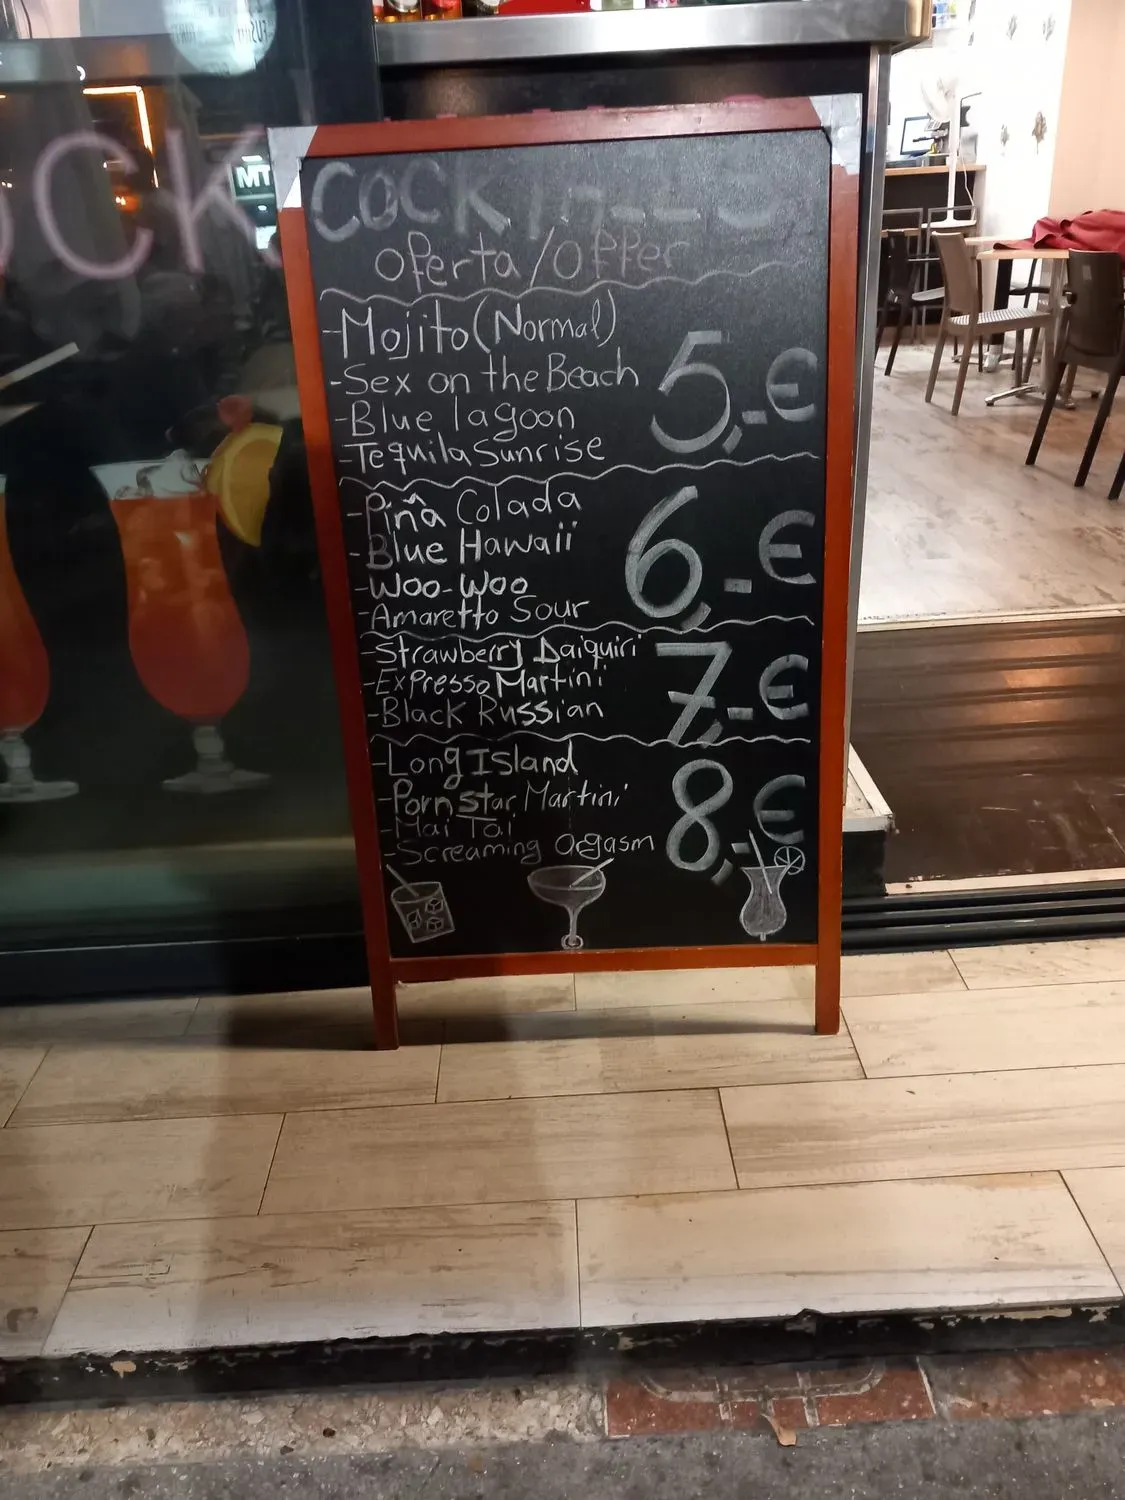 COCKTAILS
Oferta/Offer
-Mojito (Normal)
-Sex on the Beach
-Blue lagoon
-Tequila Sunrise
5,-€
-Piña Colada
-Blue Hawaii
-Woo-Woo
-Amaretto Sour
6,-€
-Strawberry Daiquiri
-Expresso Martini
-Black Russian
7,-€
-Long Island
-Porn star Martini
-Mai Tai
-Screaming Orgasm
8,-€
OCK
MT